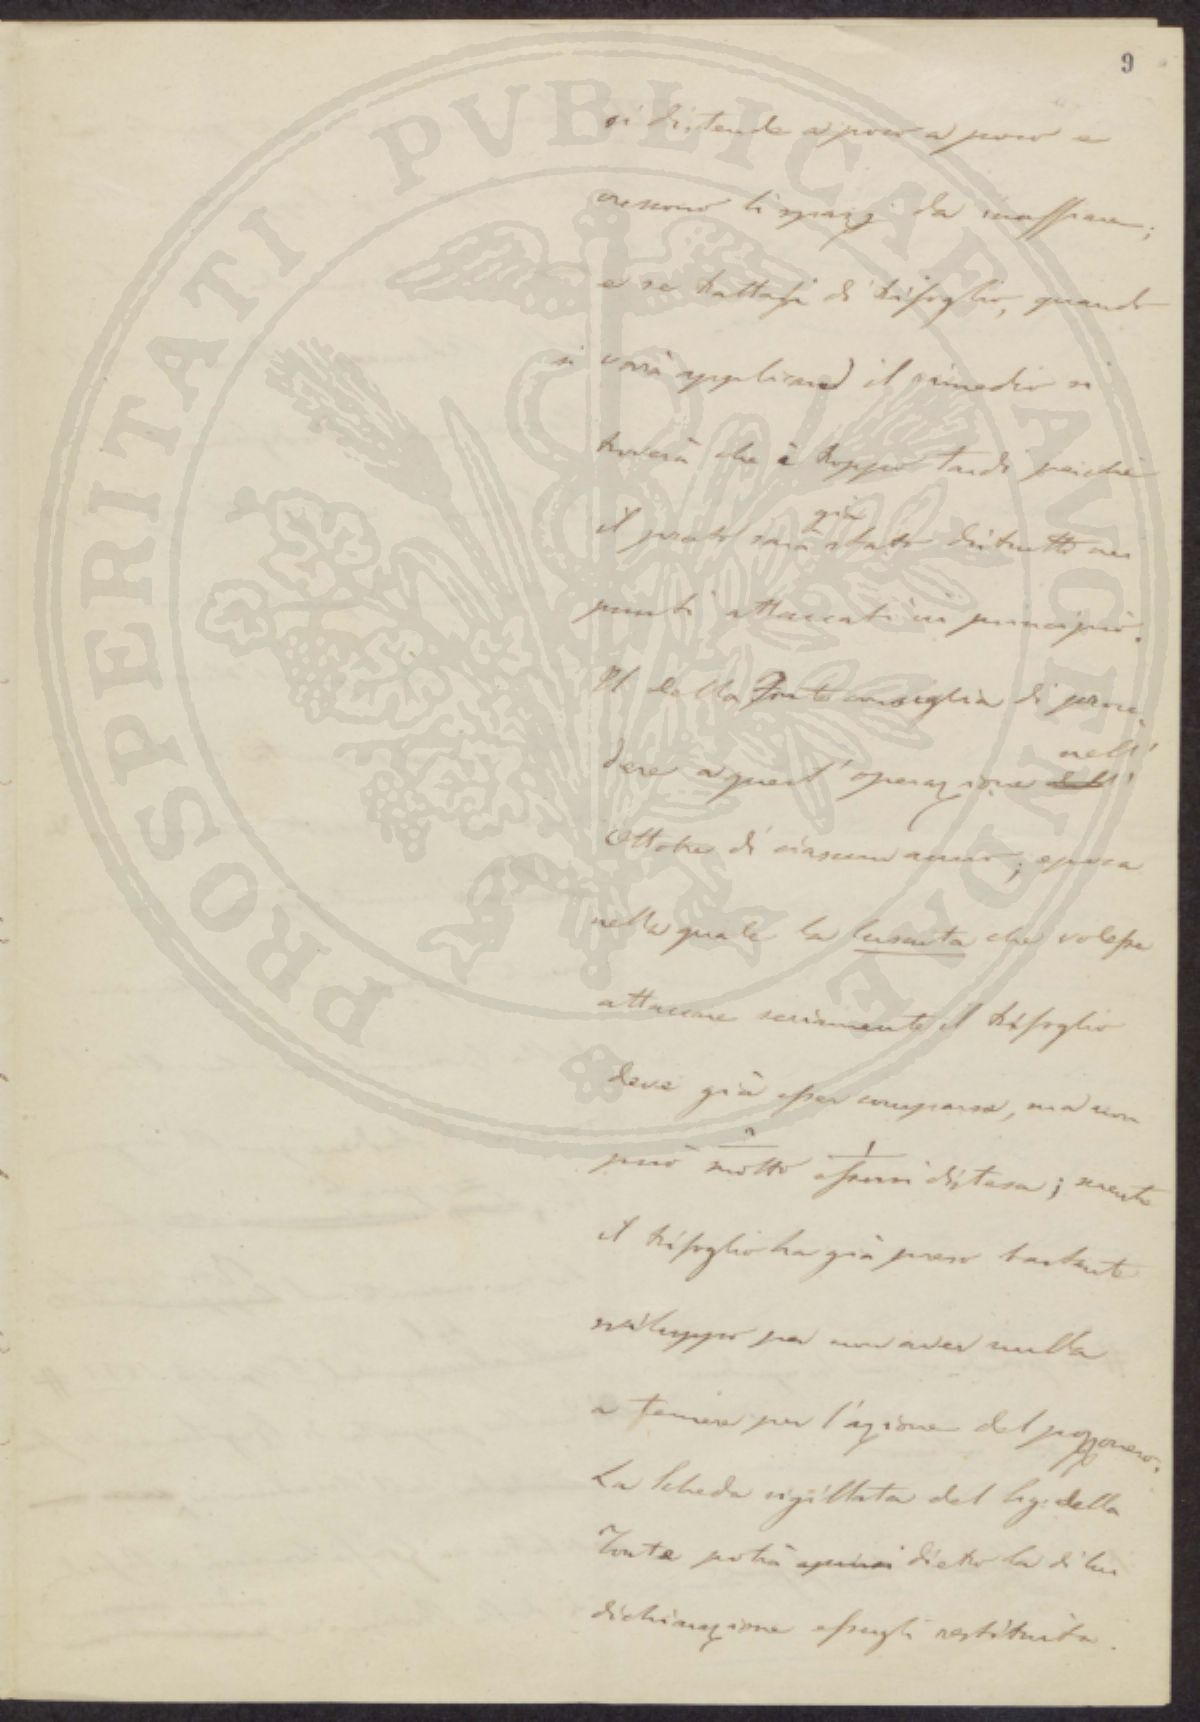 9
PROSPERITATI PVBLICAE AVGENDAE
si distende a poco a poco e
crescono li spazj da inaffiare;
e se trattasi di trifoglio, quando
si vorrà applicare il rimedio si
troverà che è troppo tardi poichè
il prato sarà già stato distrutto nei
punti attaccati in principio.
Il della Fonte consiglia di proce-
dere a quest'operazione dell' nell'
Ottobre di ciascun anno; epoca
nella quale la cuscuta che volesse
attaccare seriamente il trifoglio
deve già esser comparsa, ma non
può molto essersi distesa; mentre
il trifoglio ha già preso bastante
sviluppo per non aver nulla
a temere per l'azione del pozzonero.
La Scheda sigillata del Sig. della
Fonte potrà aprirsi dietro la di lui
dichiarazione essergli restituita.